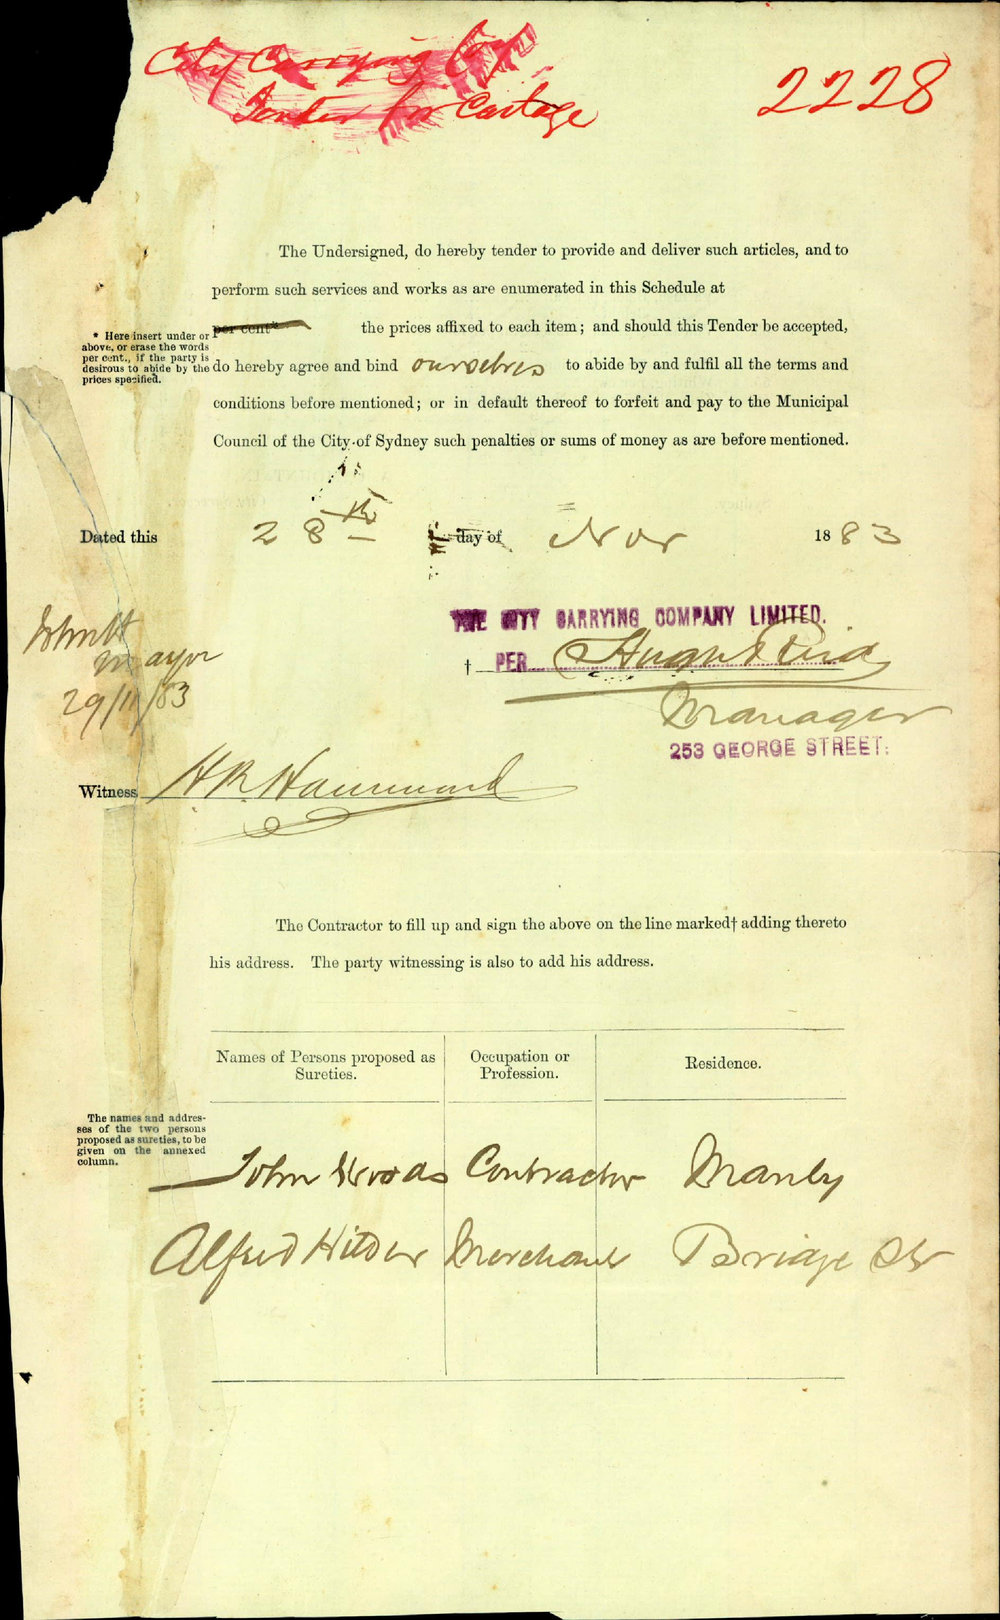 City Carrying Coy
Tender for Cartage
2228
The Undersigned, do hereby tender to provide and deliver such articles, and to
perform such services and works as are enumerated in this Schedule at
per cent* the prices affixed to each item; and should this Tender be accepted,
do hereby agree and bind ourselves to abide by and fulfil all the terms and
conditions before mentioned; or in default thereof to forfeit and pay to the Municipal
Council of the City of Sydney such penalties or sums of money as are before mentioned.
* Here insert under or
above, or erase the words
per cent., if the party is
desirous to abide by the
prices specified.
Dated this 28th day of Nov 1883
THE CITY CARRYING COMPANY LIMITED.
† PER Hugh Reid
Manager
253 GEORGE STREET.
John
Mayor
29/11/83
Witness H R Hammond
The Contractor to fill up and sign the above on the line marked† adding thereto
his address. The party witnessing is also to add his address.
Names of Persons proposed as
Sureties.
Occupation or
Profession.
Residence.
The names and addres-
ses of the two persons
proposed as sureties, to be
given on the annexed
column.
John Woods Contractor Manly
Alfred Hilder Merchant Bridge St